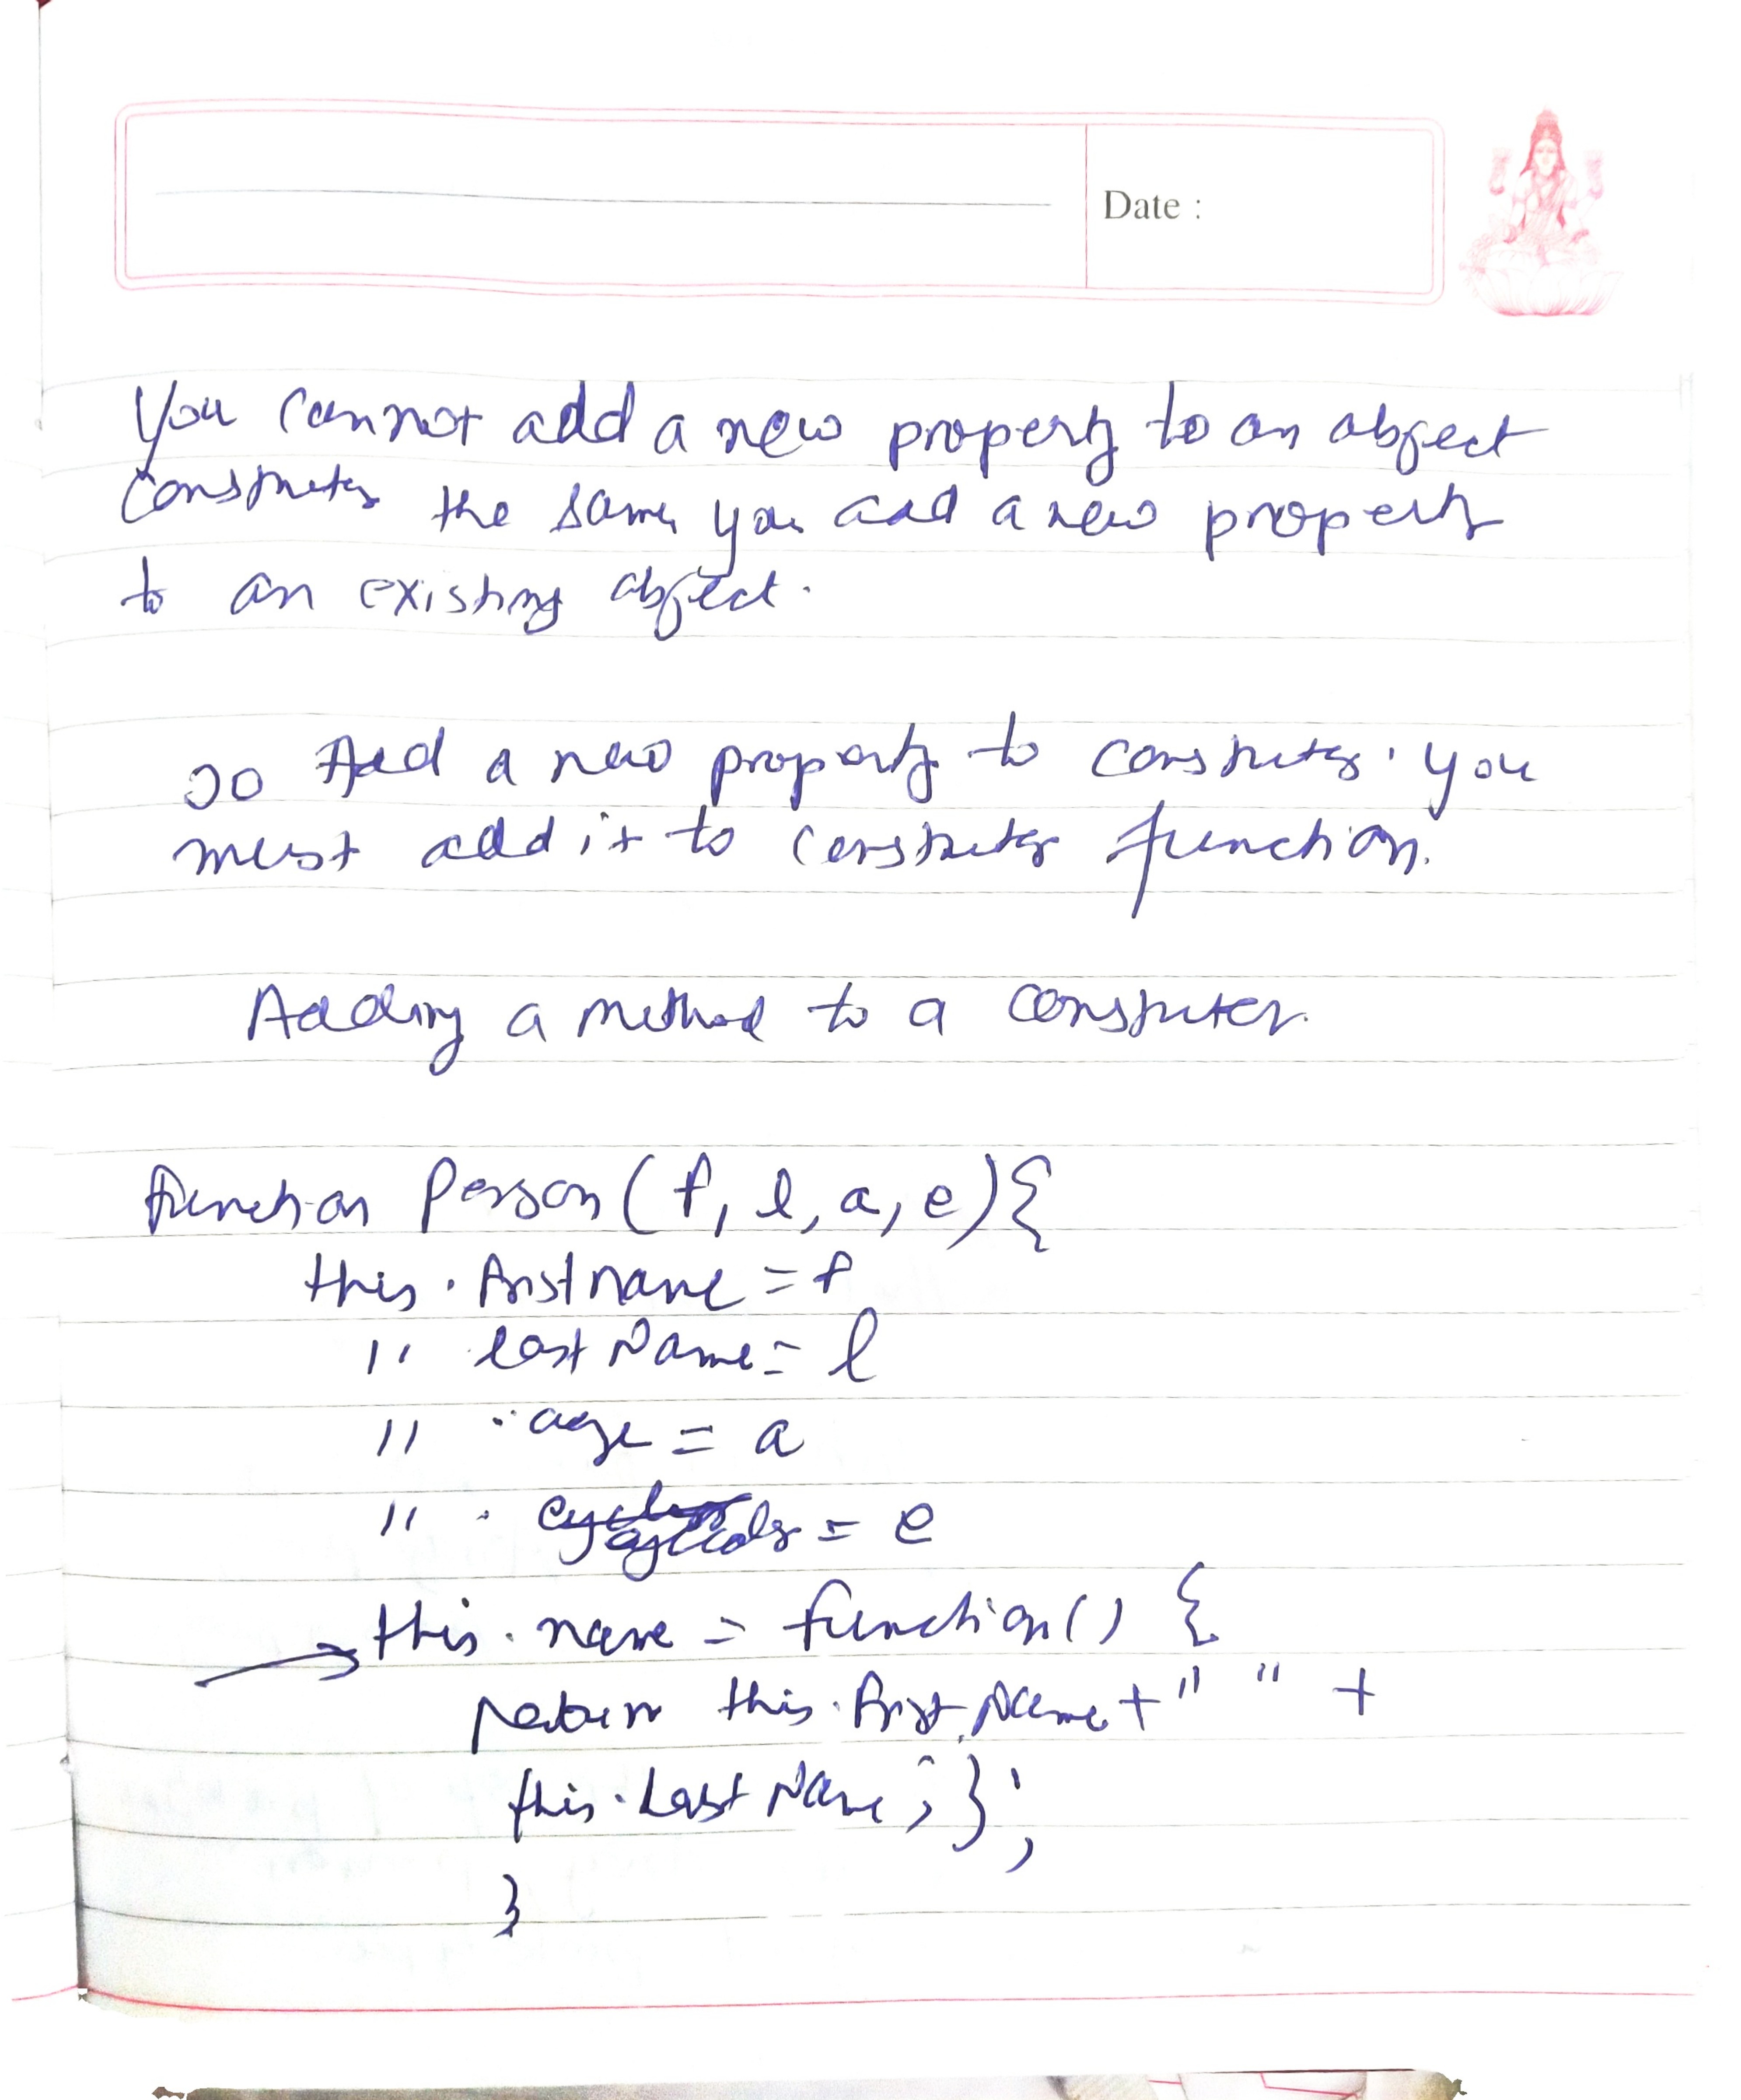 Date :
You cannot add a new property to an object
Constructor the same you add a new property
to an existing object.
To Add a new property to constructor. you
must add it to constructor function.
Adding a method to a constructor.
function Person (f, l, a, e) {
this . firstname = f
" last Name = l
" . age = a
" . = e
this . name = function () {
return this . First Name + " " +
this . Last Name ; } ;
}